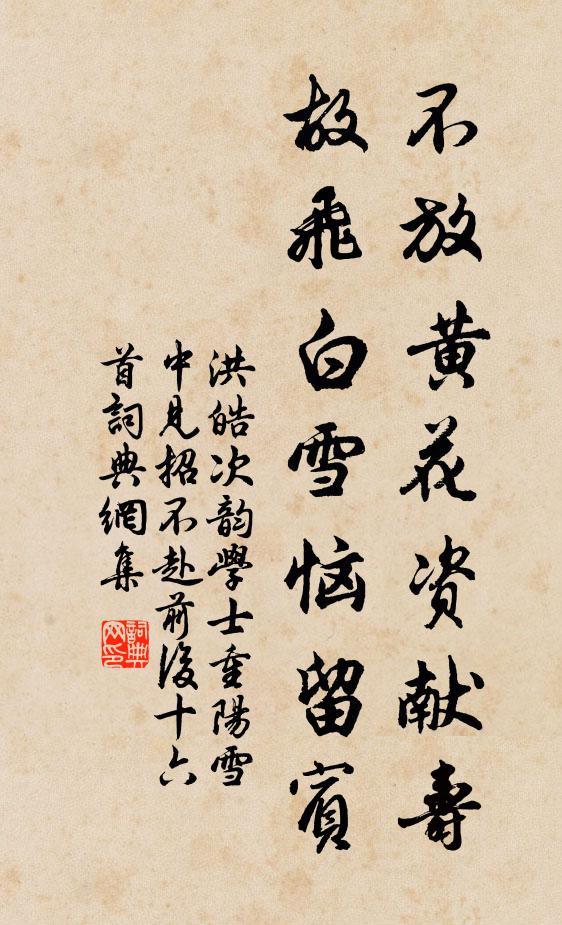 不放黄花资献壽
故飛白雪恼留賓
洪皓次韵學士重陽雪
中見招不赴前後十六
首詞典網集
詞典
网印